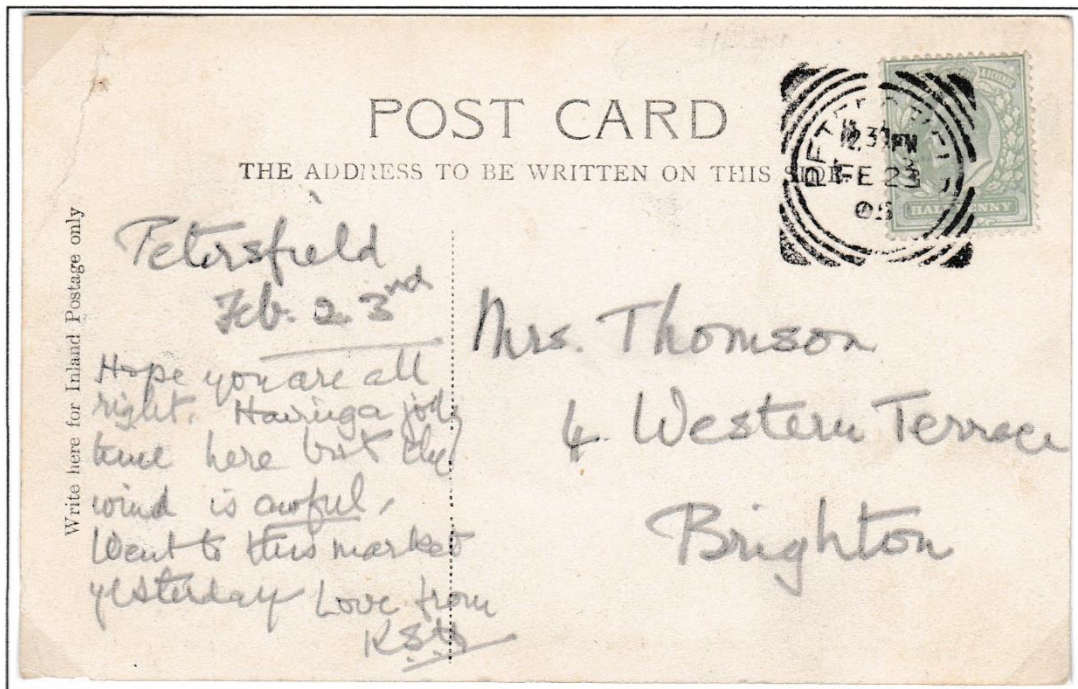 POST CARD
THE ADDRESS TO BE WRITTEN ON THIS SIDE
HALFPENNY
FE 23
Write here for Inland Postage only
Petersfield
Feb. 23nd
Hope you are all
right. Having a jolly
time here but the
wind is awful.
Went to this market
yesterday Love from
Mrs. Thomson
4 Western Terrace
Brighton